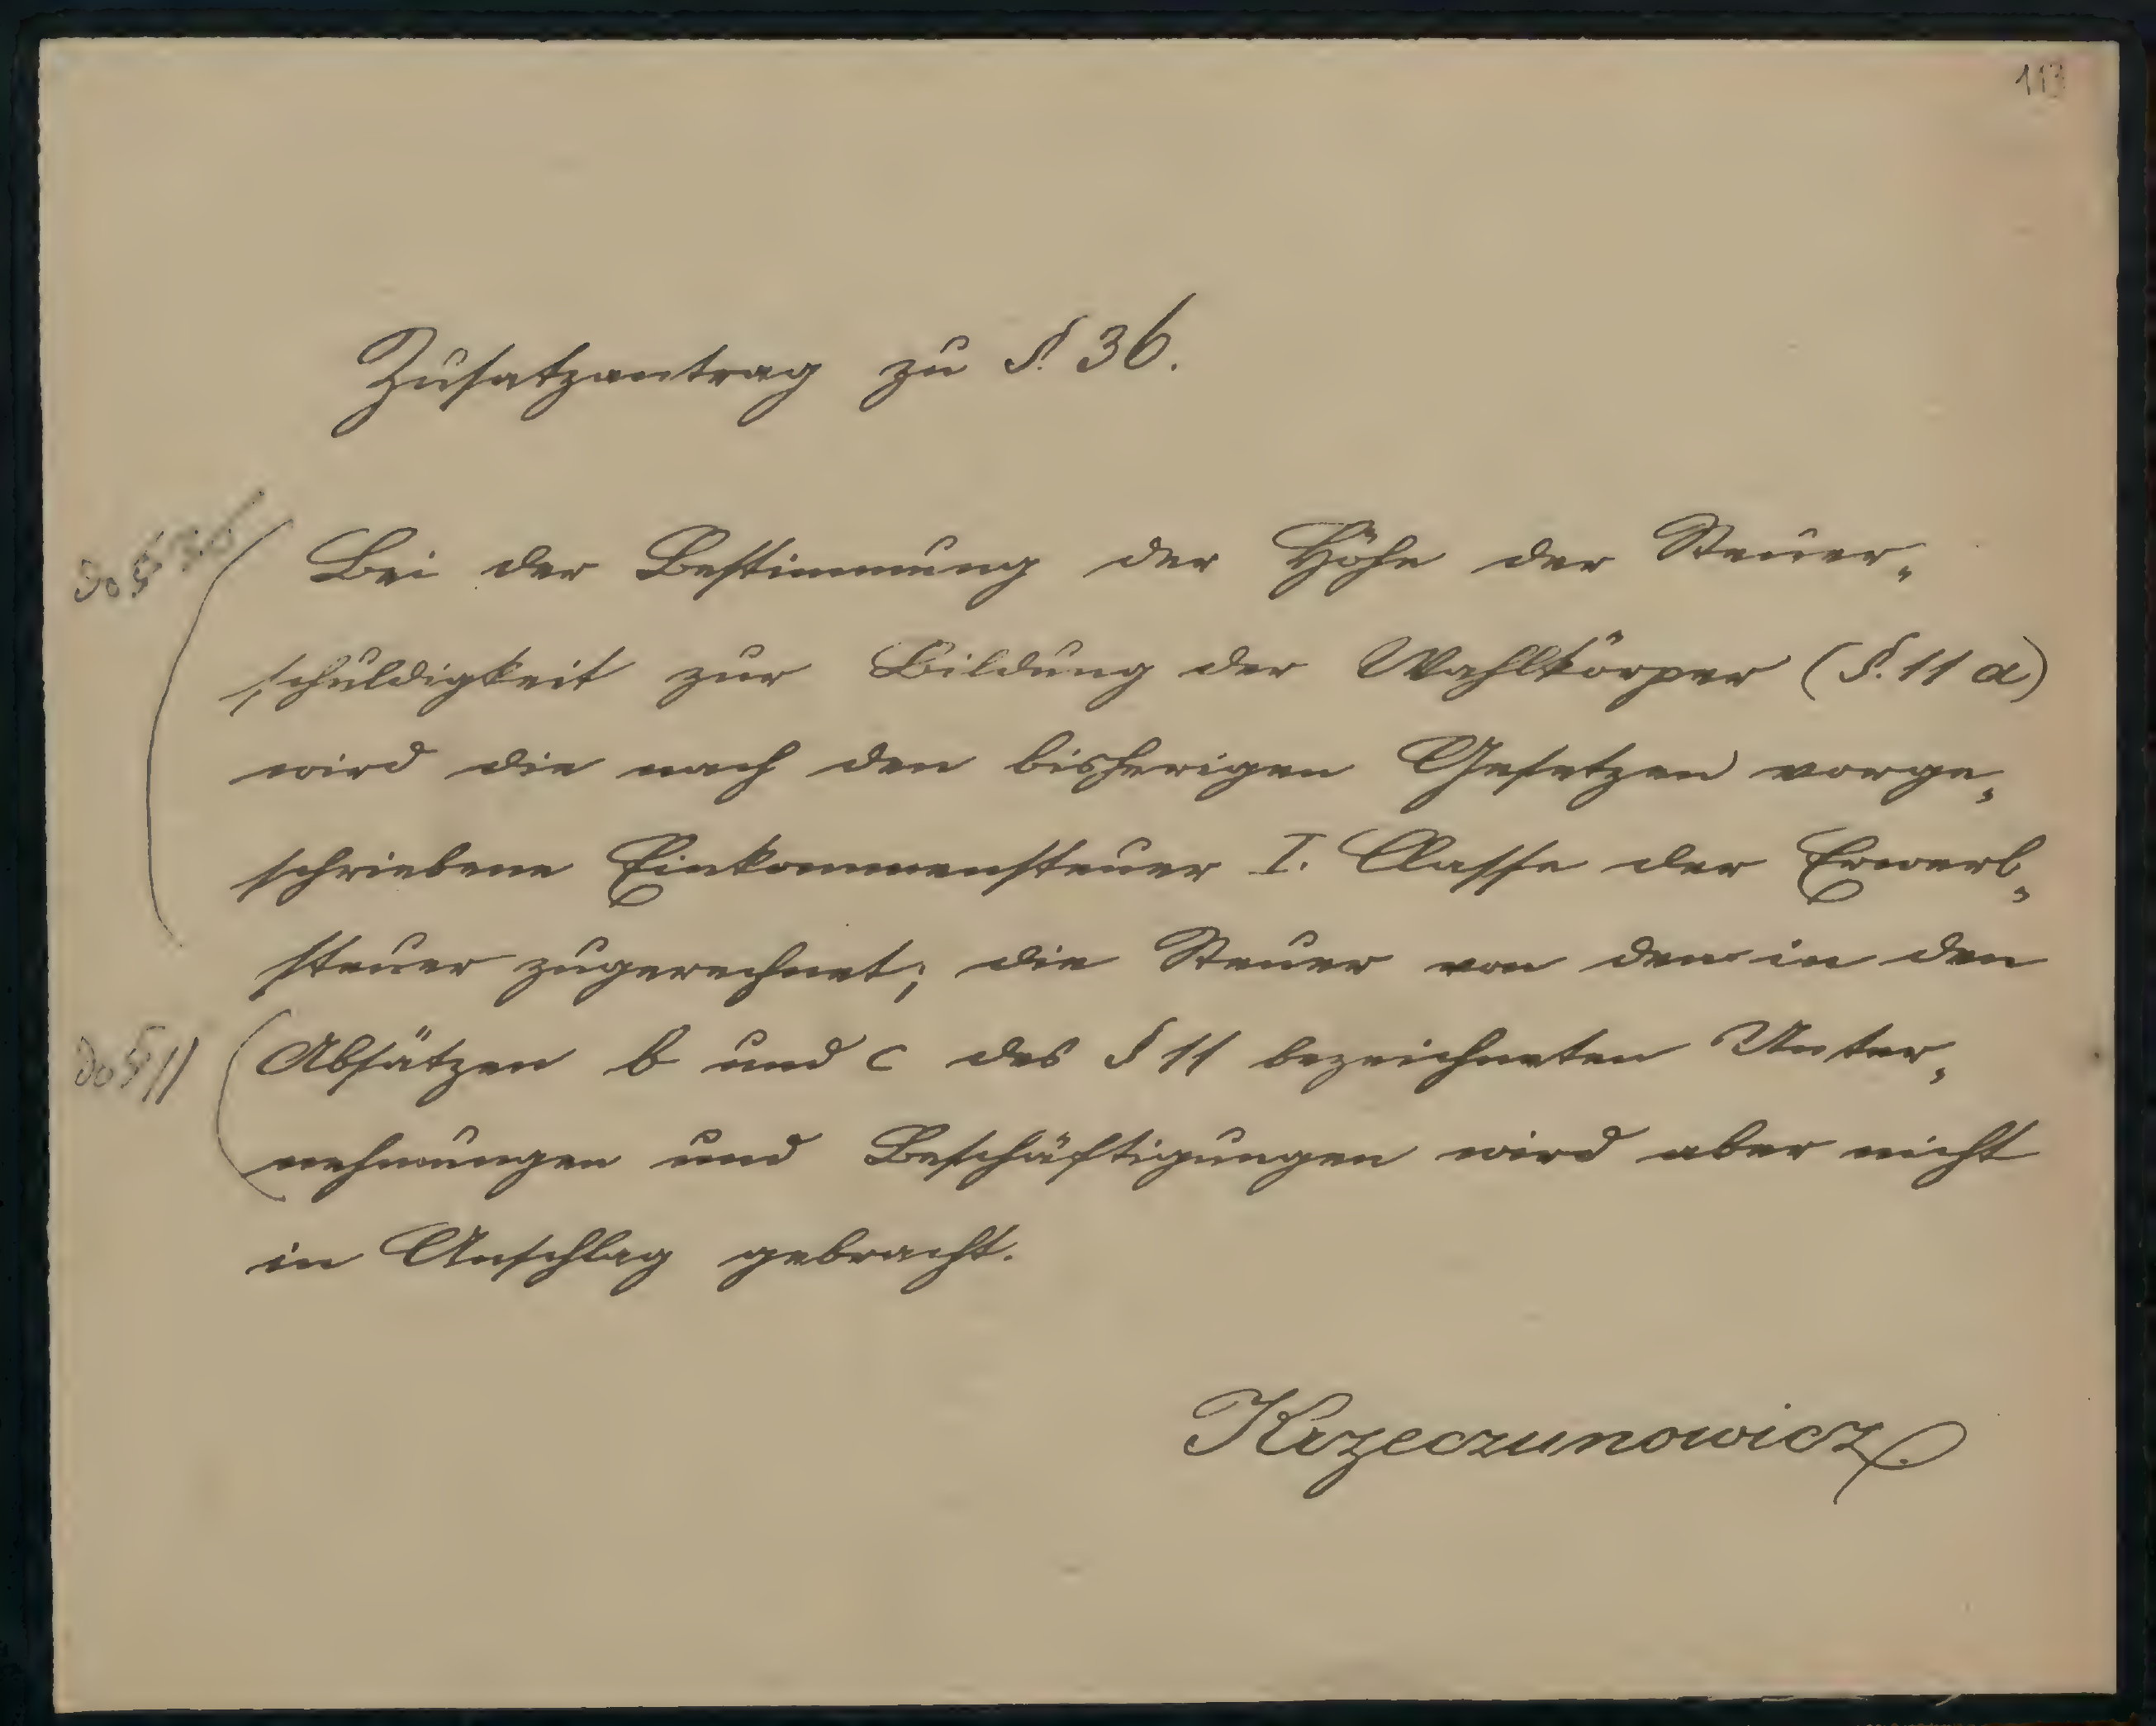 113
Zusatzantrag zu §. 36.
do § 36
Bei der Bestimmung der Höhe der Steuer„
schuldigkeit zur Bildung der Wahlkörper (§. 11 a)
wird die nach den bisherigen Gesetzen vorge„
schriebene Einkommensteuer I. Classe der Erwerb„
steuer zugerechnet; die Steuer von den in den
do § 11
Absätzen b und c des § 11 bezeichneten Unter„
nehmungen und Beschäftigungen wird aber nicht
in Anschlag gebracht.
Krzeczunowicz